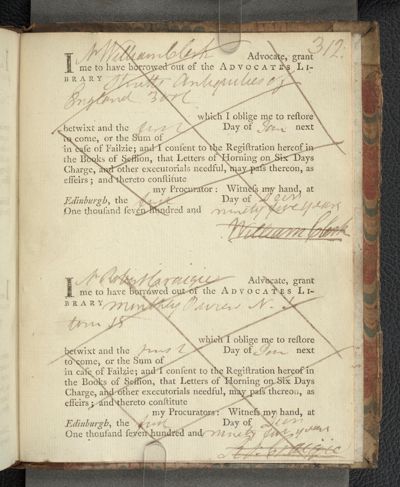 312.
I Mr William Clerk Advocate, grant
me to have borrowed out of the ADVOCATES LI-
BRARY Strutts Antiquities of
England 3 vol.
which I oblige me to reſtore
betwixt and the first Day of Jan next
to come, or the Sum of
in caſe of Failzie; and I conſent to the Regiſtration hereof in
the Books of Seſſion, that Letters of Horning on Six Days
Charge, and other executorials needful, may paſs thereon, as
effeirs; and thereto conſtitute
my Procurator: Witneſs my hand, at
Edinburgh, the first Day of
One thouſand ſeven hundred and ninety five years
William Clerk
I Mr Robert Carnegie Advocate, grant
me to have borrowed out of the ADVOCATES LI-
BRARY Monthly Review N. S.
tom 18
which I oblige me to reſtore
betwixt and the first Day of Jan next
to come, or the Sum of
in caſe of Failzie; and I conſent to the Regiſtration hereof in
the Books of Seſſion, that Letters of Horning on Six Days
Charge, and other executorials needful, may paſs thereon, as
effeirs; and thereto conſtitute
my Procurators: Witneſs my hand, at
Edinburgh, the first Day of
One thouſand ſeven hundred and ninety five years